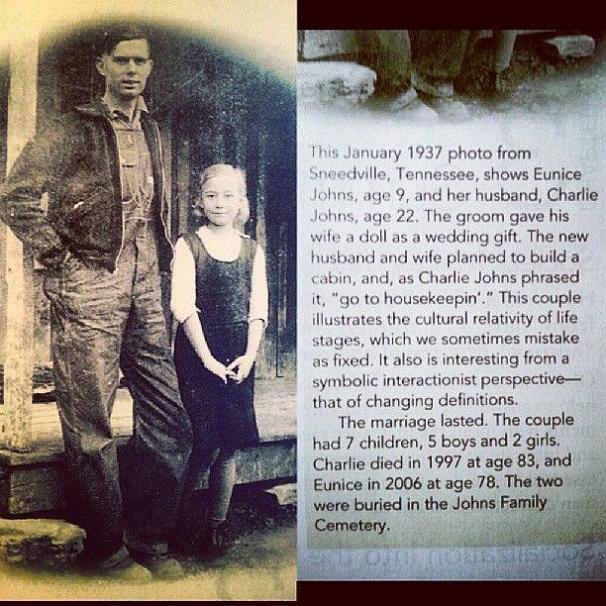 This January 1937 photo from
Sneedville, Tennessee, shows Eunice
Johns, age 9, and her husband, Charlie
Johns, age 22. The groom gave his
wife a doll as a wedding gift. The new
husband and wife planned to build a
cabin, and, as Charlie Johns phrased
it, "go to housekeepin'." This couple
illustrates the cultural relativity of life
stages, which we sometimes mistake
as fixed. It also is interesting from a
symbolic interactionist perspective—
that of changing definitions.
The marriage lasted. The couple
had 7 children, 5 boys and 2 girls.
Charlie died in 1997 at age 83, and
Eunice in 2006 at age 78. The two
were buried in the Johns Family
Cemetery.